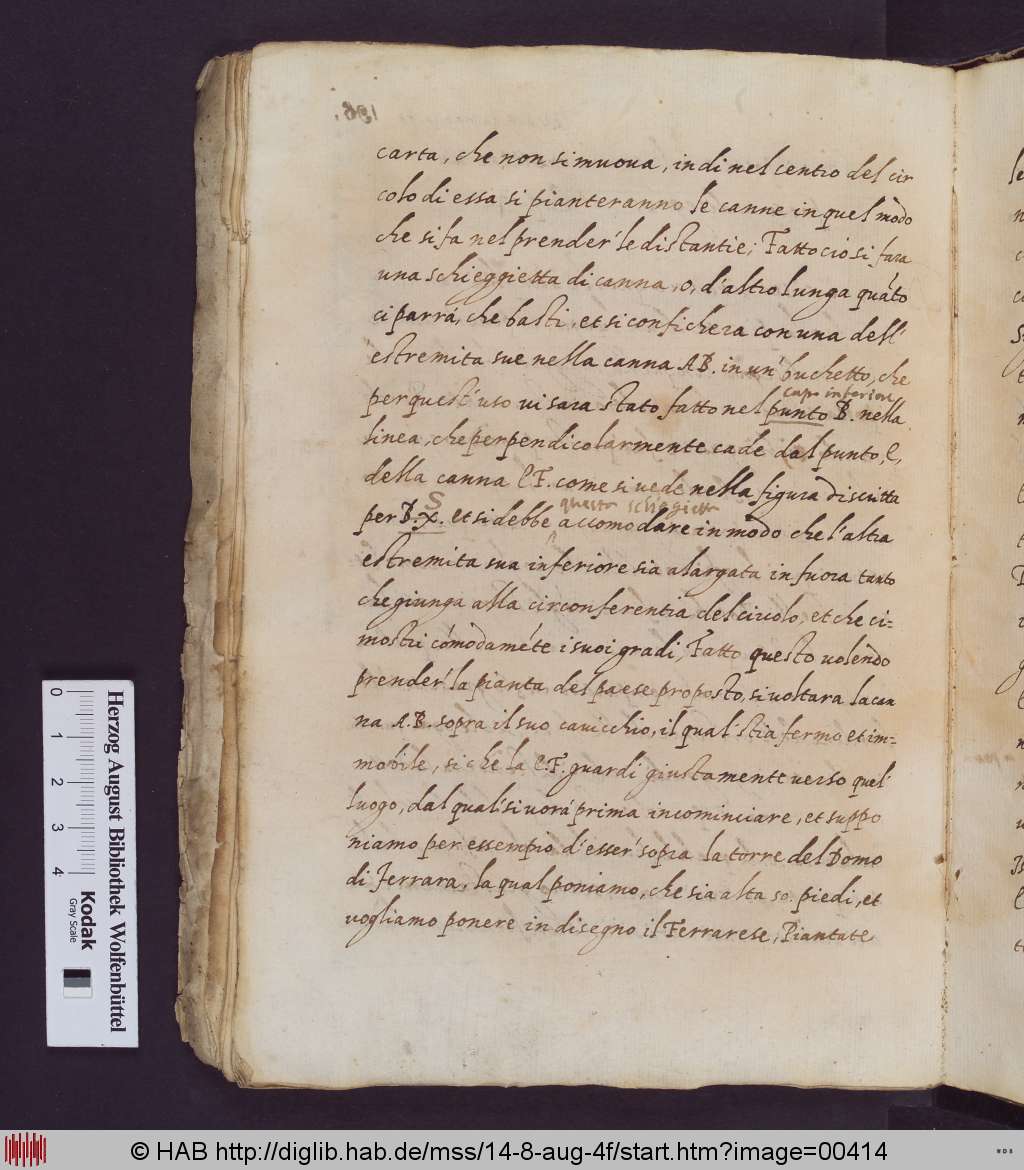 196.
carta, che non si muova, indi nel centro del cir
colo di essa si pianteranno le canne in quel modo
che si fa nel prender' le distantie; Fatto cio si fara
una schieggietta di canna, o, d'altro lunga quáto
ci parrá, che basti, et si confichera con una dell'
estremita sue nella canna AB. in un' buchetto, che
capo inferiore
per quest' uso vi sara stato fatto nel punto B. nella
linea, che perpendicolarmente cade dal punto, E,
della canna E F. come si vede nella figura discritta
S questa schiegietta
per B. X. et si debbe accomodare in modo che l'altra
estremita sua inferiore sia alargata in fuora tanto
che giunga alla circonferentia del circolo, et che ci=
mostri cómodaméte i suoi gradi; Fatto questo volendo
prender' la pianta del paese proposto, si voltara la can
na A.B. sopra il suo cavicchio, il qual' stia fermo et im=
mobile, si che la E.F. guardi giustamente verso quel'
luogo, dal qual' si vorá prima incominciare, et suppo
niamo per essempio d'esser' sopra la torre del Domo
di Ferrara, la qual poniamo, che sia alta 50. piedi, et
vogliamo ponere in disegno il Ferrarese; Piantate
Herzog August Bibliothek Wolfenbüttel
0 1 2 3 4
Kodak
Gray Scale
© HAB http://diglib.hab.de/mss/14-8-aug-4f/start.htm?image=00414